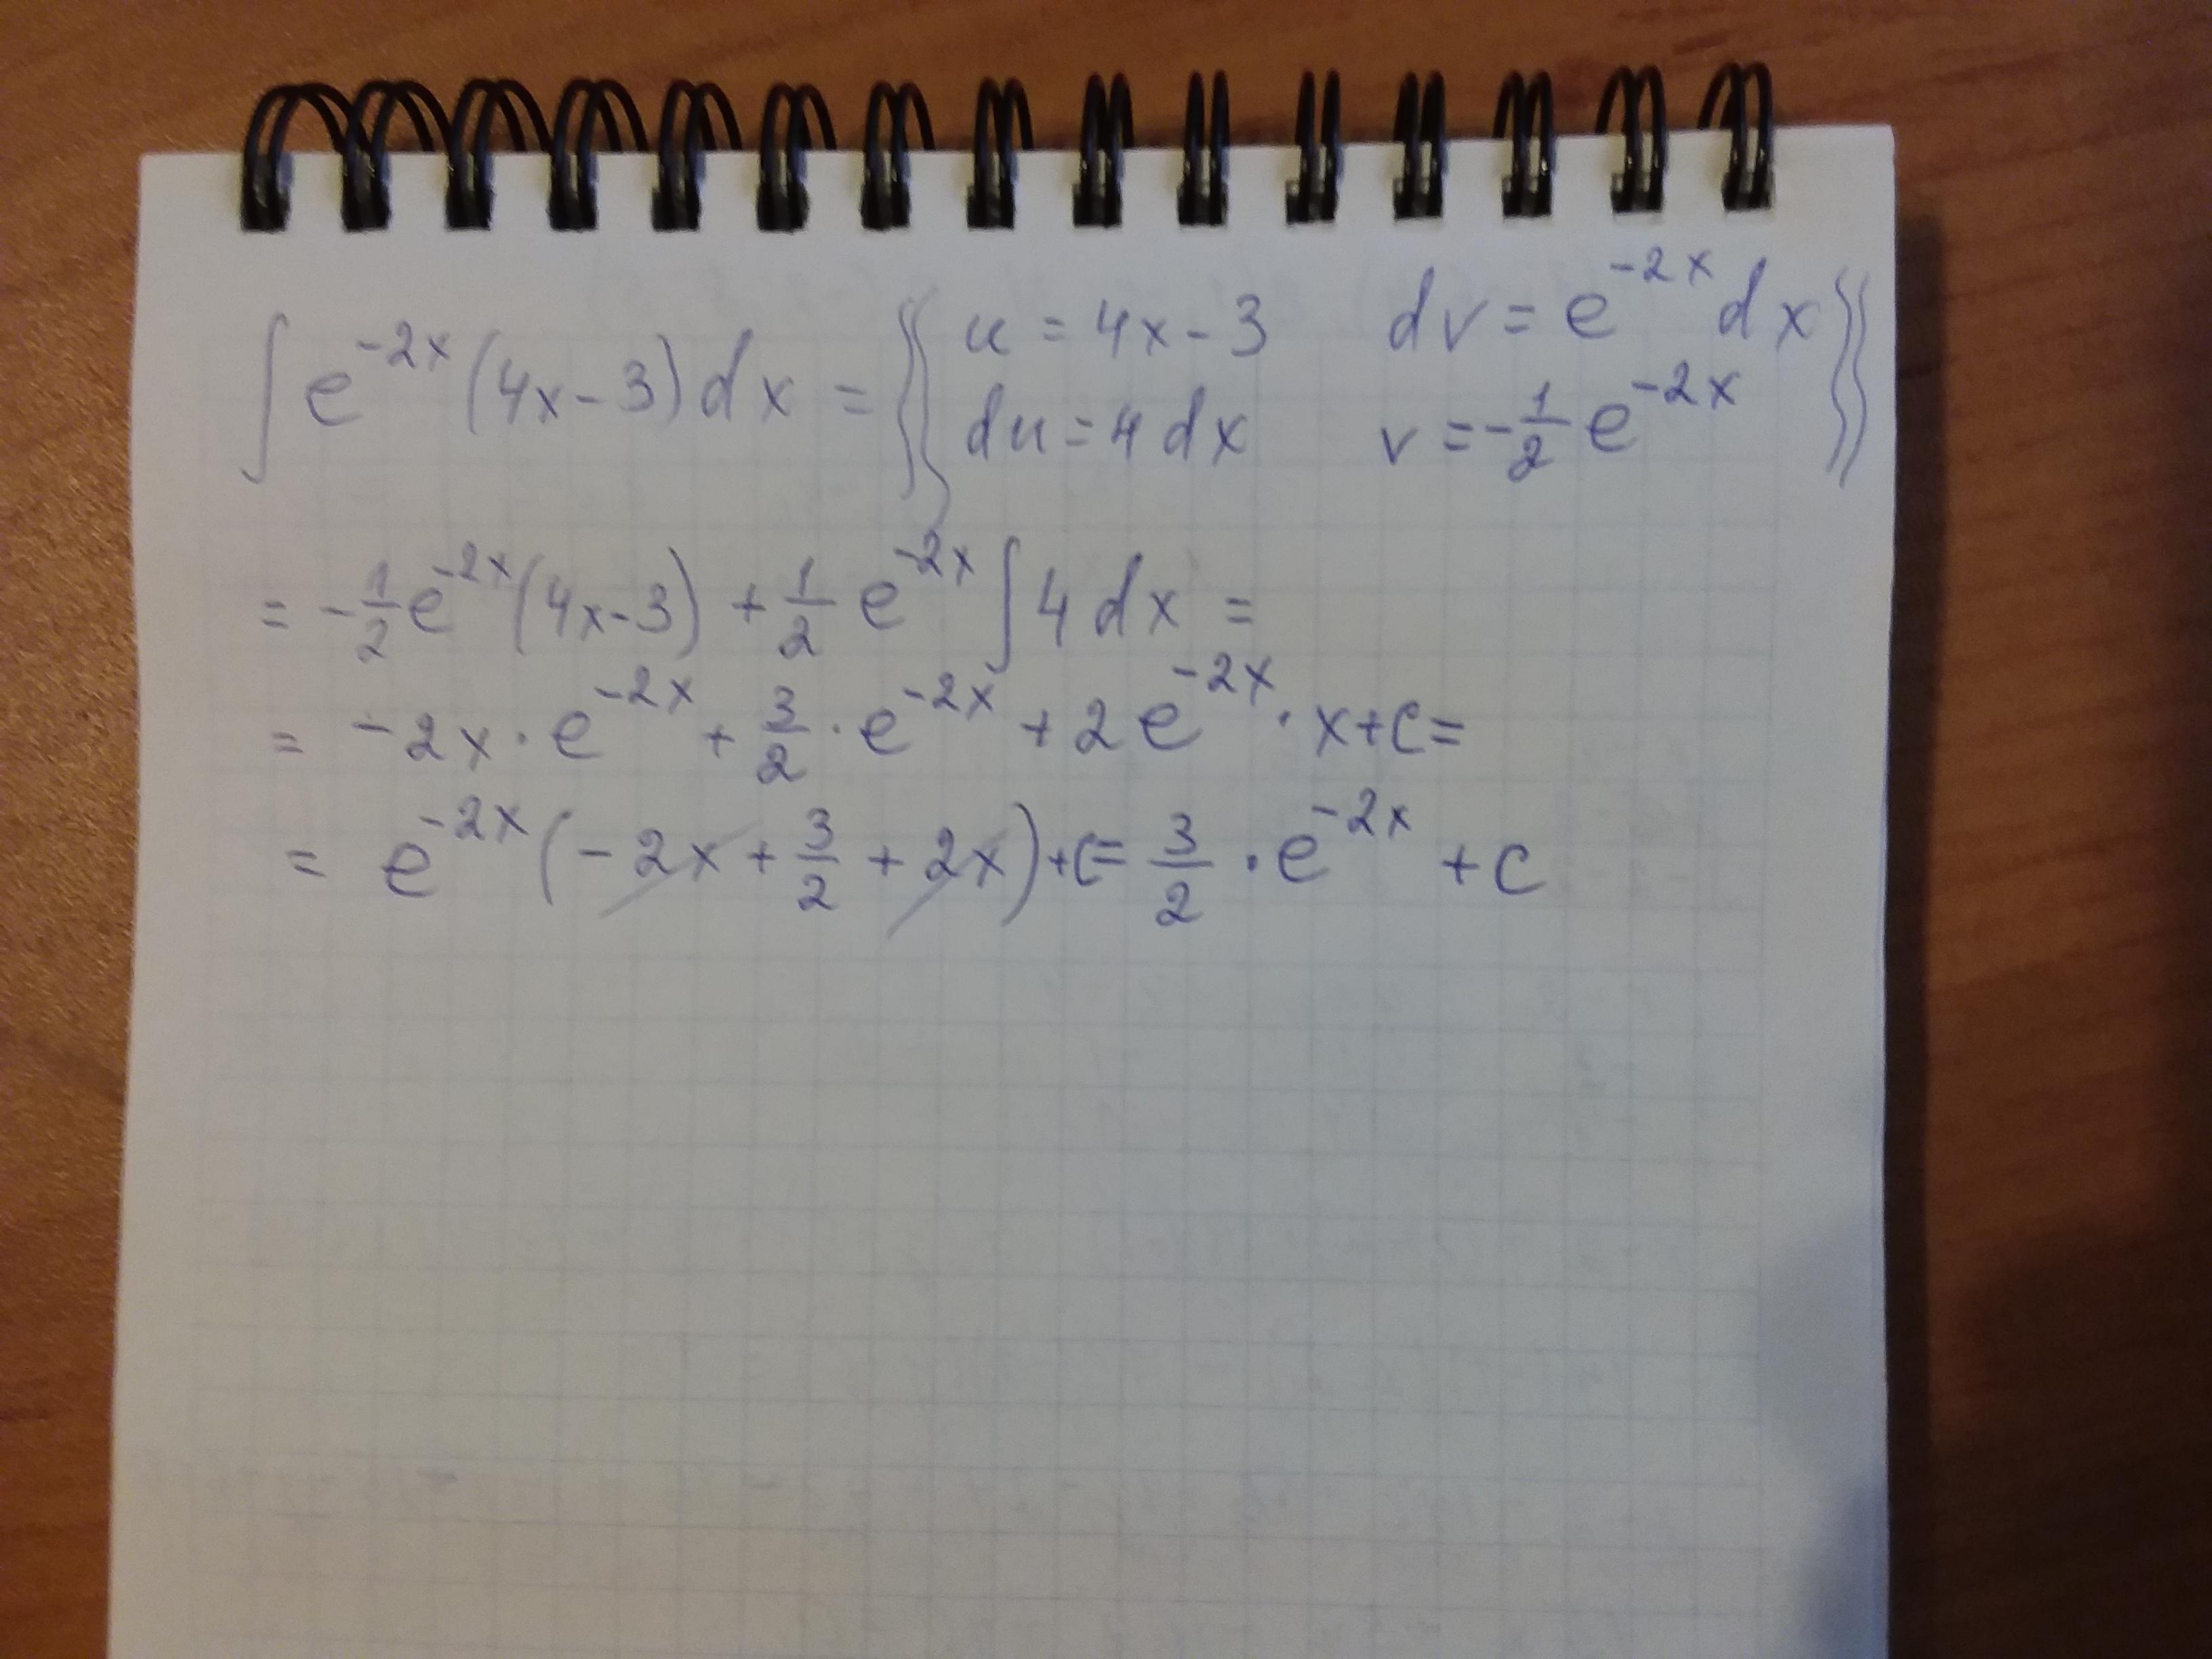 ∫ e^{-2x} (4x-3) dx = {{ u = 4x-3 dv = e^{-2x} dx
du = 4 dx v = -1/2 e^{-2x} }}
= -1/2 e^{-2x} (4x-3) + 1/2 e^{-2x} ∫ 4 dx =
= -2x · e^{-2x} + 3/2 · e^{-2x} + 2 e^{-2x} · x + c =
= e^{-2x} (-2x + 3/2 + 2x) + c = 3/2 · e^{-2x} + c